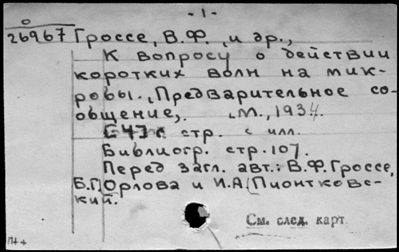 - 1 -
26967 Гроссе, В.Ф. и др.,
К вопросу о действии
коротких волн на мик-
робы. Предварительное со-
общение, М., 1934.
стр. с илл.
Библиогр. стр. 107.
Перед загл. авт.: В.Ф. Гроссе,
Б.П. Орлова и И.А. Пионтков-
ский.
См. след. карт.